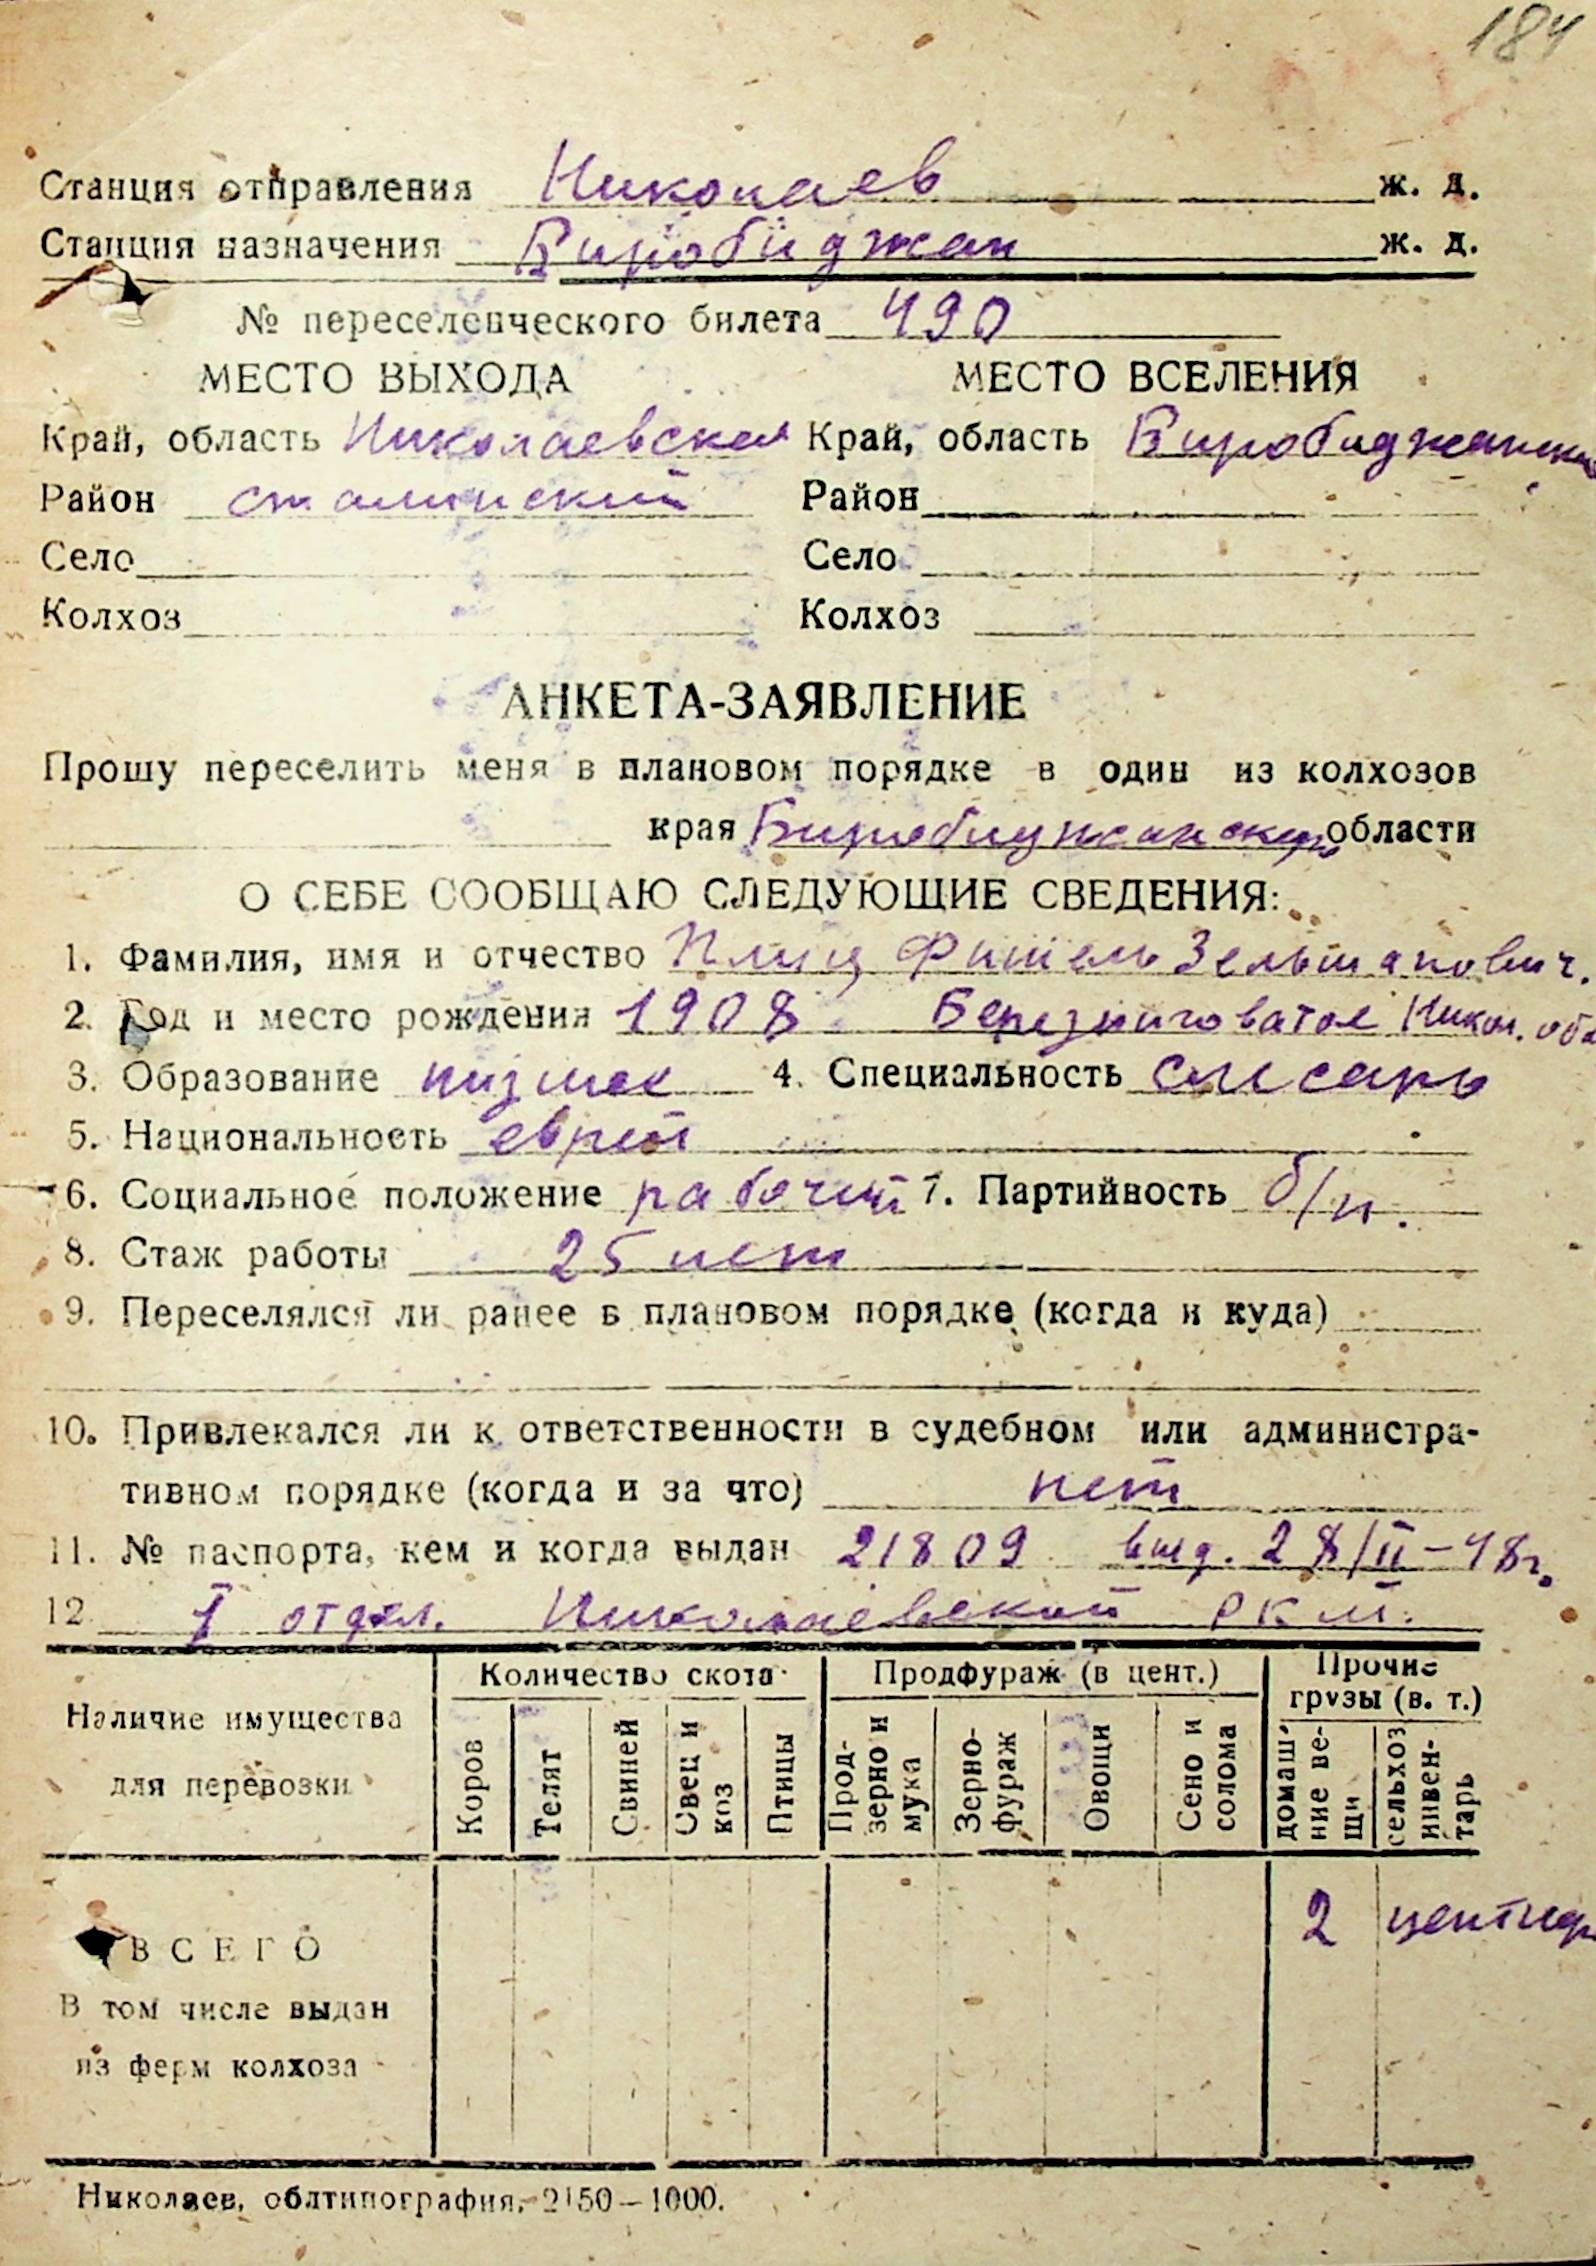 184
Станция отправления Николаев ж. д.
Станция назначения Биробиджан ж. д.
№ переселенческого билета 490
МЕСТО ВЫХОДА МЕСТО ВСЕЛЕНИЯ
Край, область Николаевская Край, область Биробиджанская
Район сталинский Район
Село Село
Колхоз Колхоз
АНКЕТА-ЗАЯВЛЕНИЕ
Прошу переселить меня в плановом порядке в один из колхозов
края Биробиджанской области
О СЕБЕ СООБЩАЮ СЛЕДУЮЩИЕ СВЕДЕНИЯ:
1. Фамилия, имя и отчество Плищ Фишель Зельманович.
2. Год и место рождения 1908 Березниговатое Никол. обл
3. Образование низшее 4. Специальность слесарь
5. Национальность еврей
6. Социальное положение рабочий 7. Партийность б/п.
8. Стаж работы 25 лет
9. Переселялся ли ранее в плановом порядке (когда и куда)
10. Привлекался ли к ответственности в судебном или администра-
тивном порядке (когда и за что) нет
11. № паспорта, кем и когда выдан 21809 выд. 28/II-48г.
12 I отдел. Николаевской РКМ.
Наличие имущества для перевозки
Количество скота
Продфураж (в цент.)
Прочие грузы (в. т.)
Коров
Телят
Свиней
Овец и коз
Птицы
Прод-зерно и мука
Зерно-фураж
Овощи
Сено и солома
домашние вещи
сельхоз инвен-тарь
ВСЕГО 2 центнер
В том числе выдан
из ферм колхоза
Николаев, облтипография, 2150—1000.